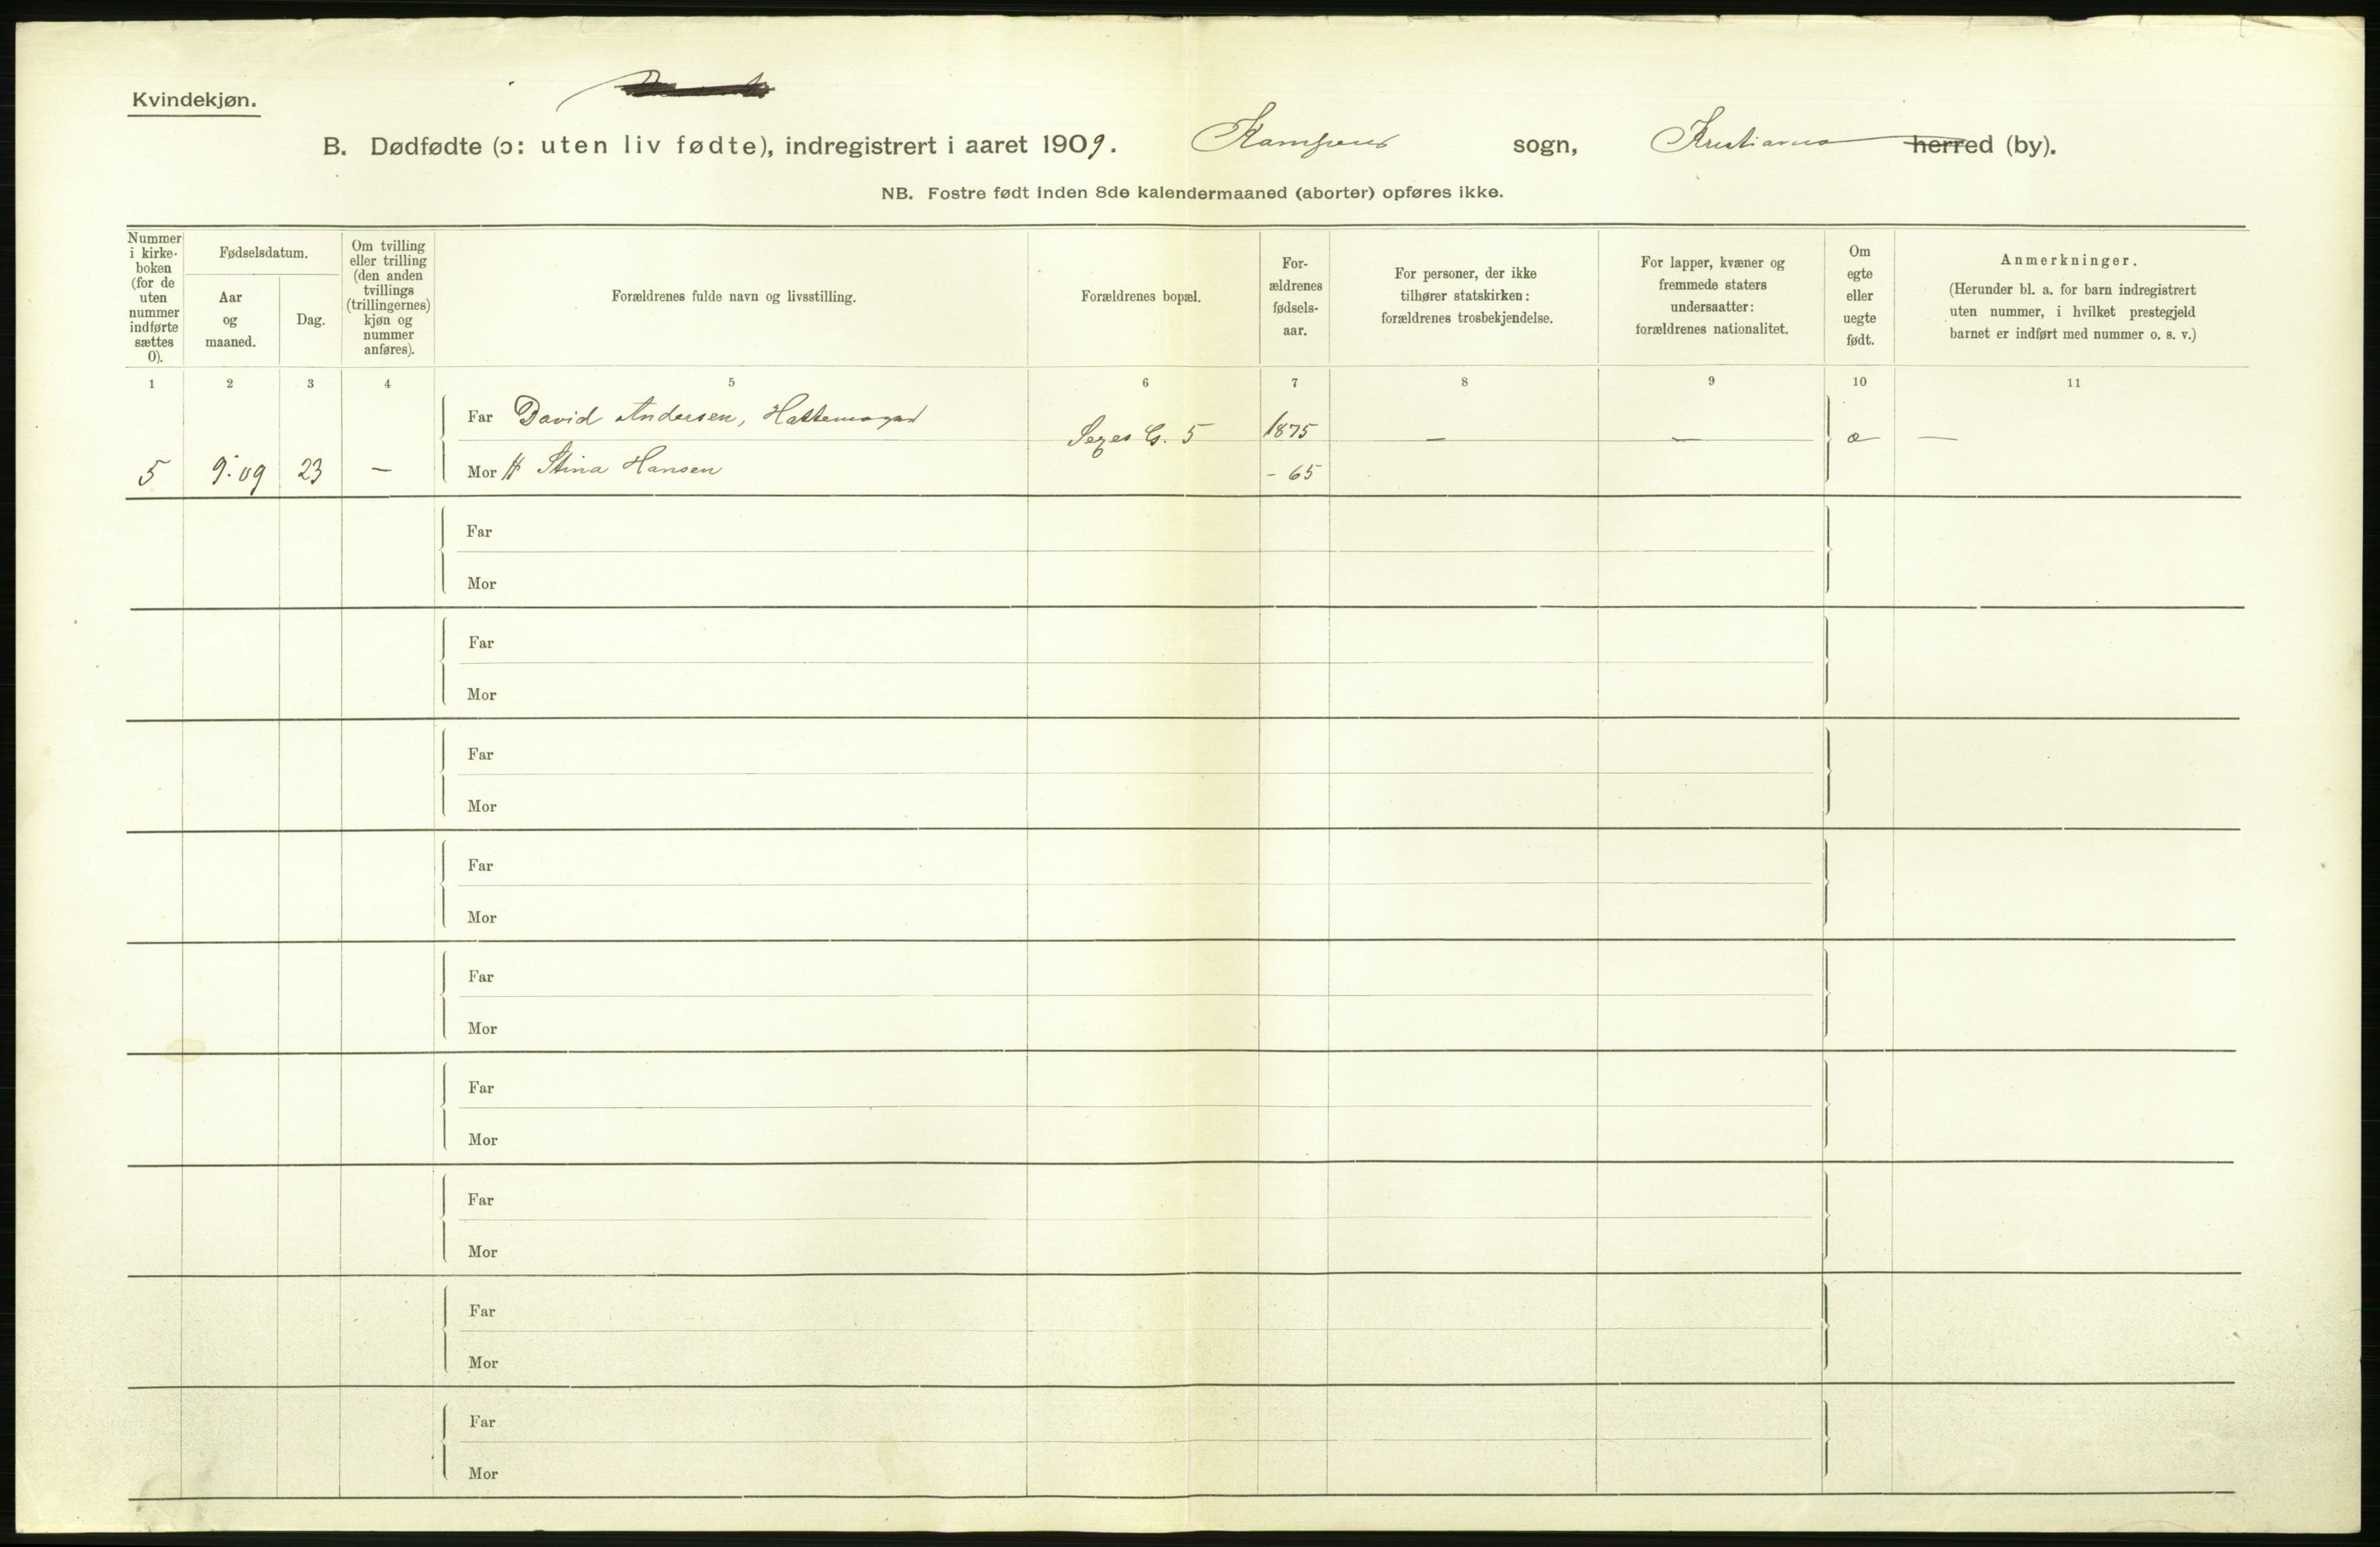 Kvindekjøn.
B. Dødfødte (ɔ: uten liv fødte), indregistrert i aaret 1909. Kampens sogn, Kristiania herred (by).
NB. Fostre født inden 8de kalendermaaned (aborter) opføres ikke.
Nummer i kirke-boken (for de uten nummer indførte sættes 0).
Fødselsdatum.
Aar og maaned.
Dag.
Om tvilling eller trilling (den anden tvillings (trillingernes) kjøn og nummer anføres).
Forældrenes fulde navn og livsstilling.
Forældrenes bopæl.
For-ældrenes fødsels-aar.
For personer, der ikke tilhører statskirken: forældrenes trosbekjendelse.
For lapper, kvæner og fremmede staters undersaatter: forældrenes nationalitet.
Om egte eller uegte født.
Anmerkninger.
(Herunder bl. a. for barn indregistrert uten nummer, i hvilket prestegjeld barnet er indført med nummer o. s. v.)
1 2 3 4 5 6 7 8 9 10 11
Far David Andersen, Hattemager 1875 — — —
G. 5
5 9.09 23 — Mor Stina Hansen - 65
Far
Mor
Far
Mor
Far
Mor
Far
Mor
Far
Mor
Far
Mor
Far
Mor
Far
Mor
Far
Mor